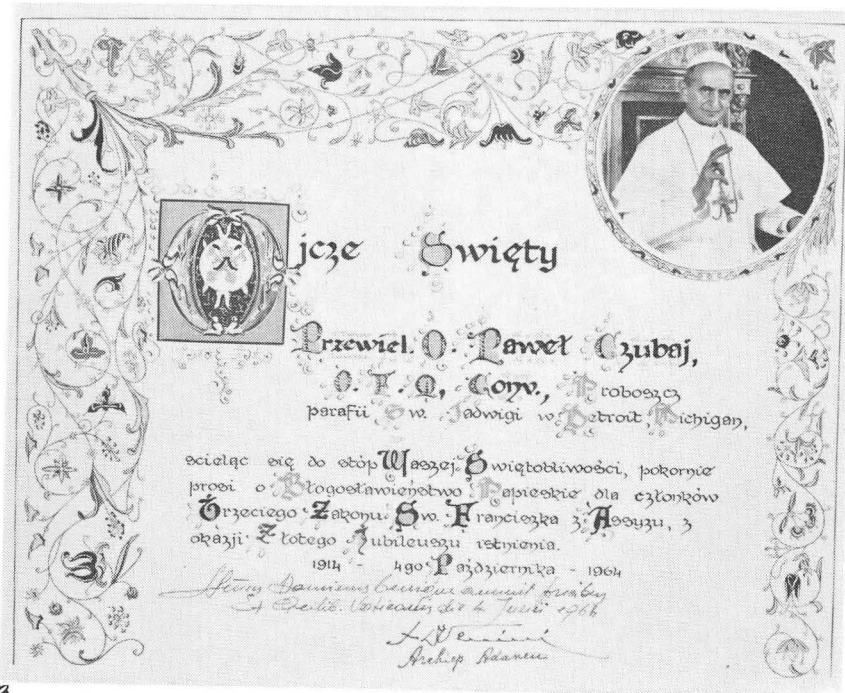 Ojcze Święty
Przewiel. O. Paweł Czubaj,
O. F. M. Conv., Proboszcz
parafii Św. Jadwigi w Detroit, Michigan,
ścieląc się do stóp Waszej Świętobliwości, pokornie
prosi o Błogosławieństwo Papieskie dla członków
Trzeciego Zakonu Św. Franciszka z Assyżu, z
okazji Złotego Jubileuszu istnienia.
1914 - 4go Października - 1964
Dominus benigne annuit precibus
1964
Archiep